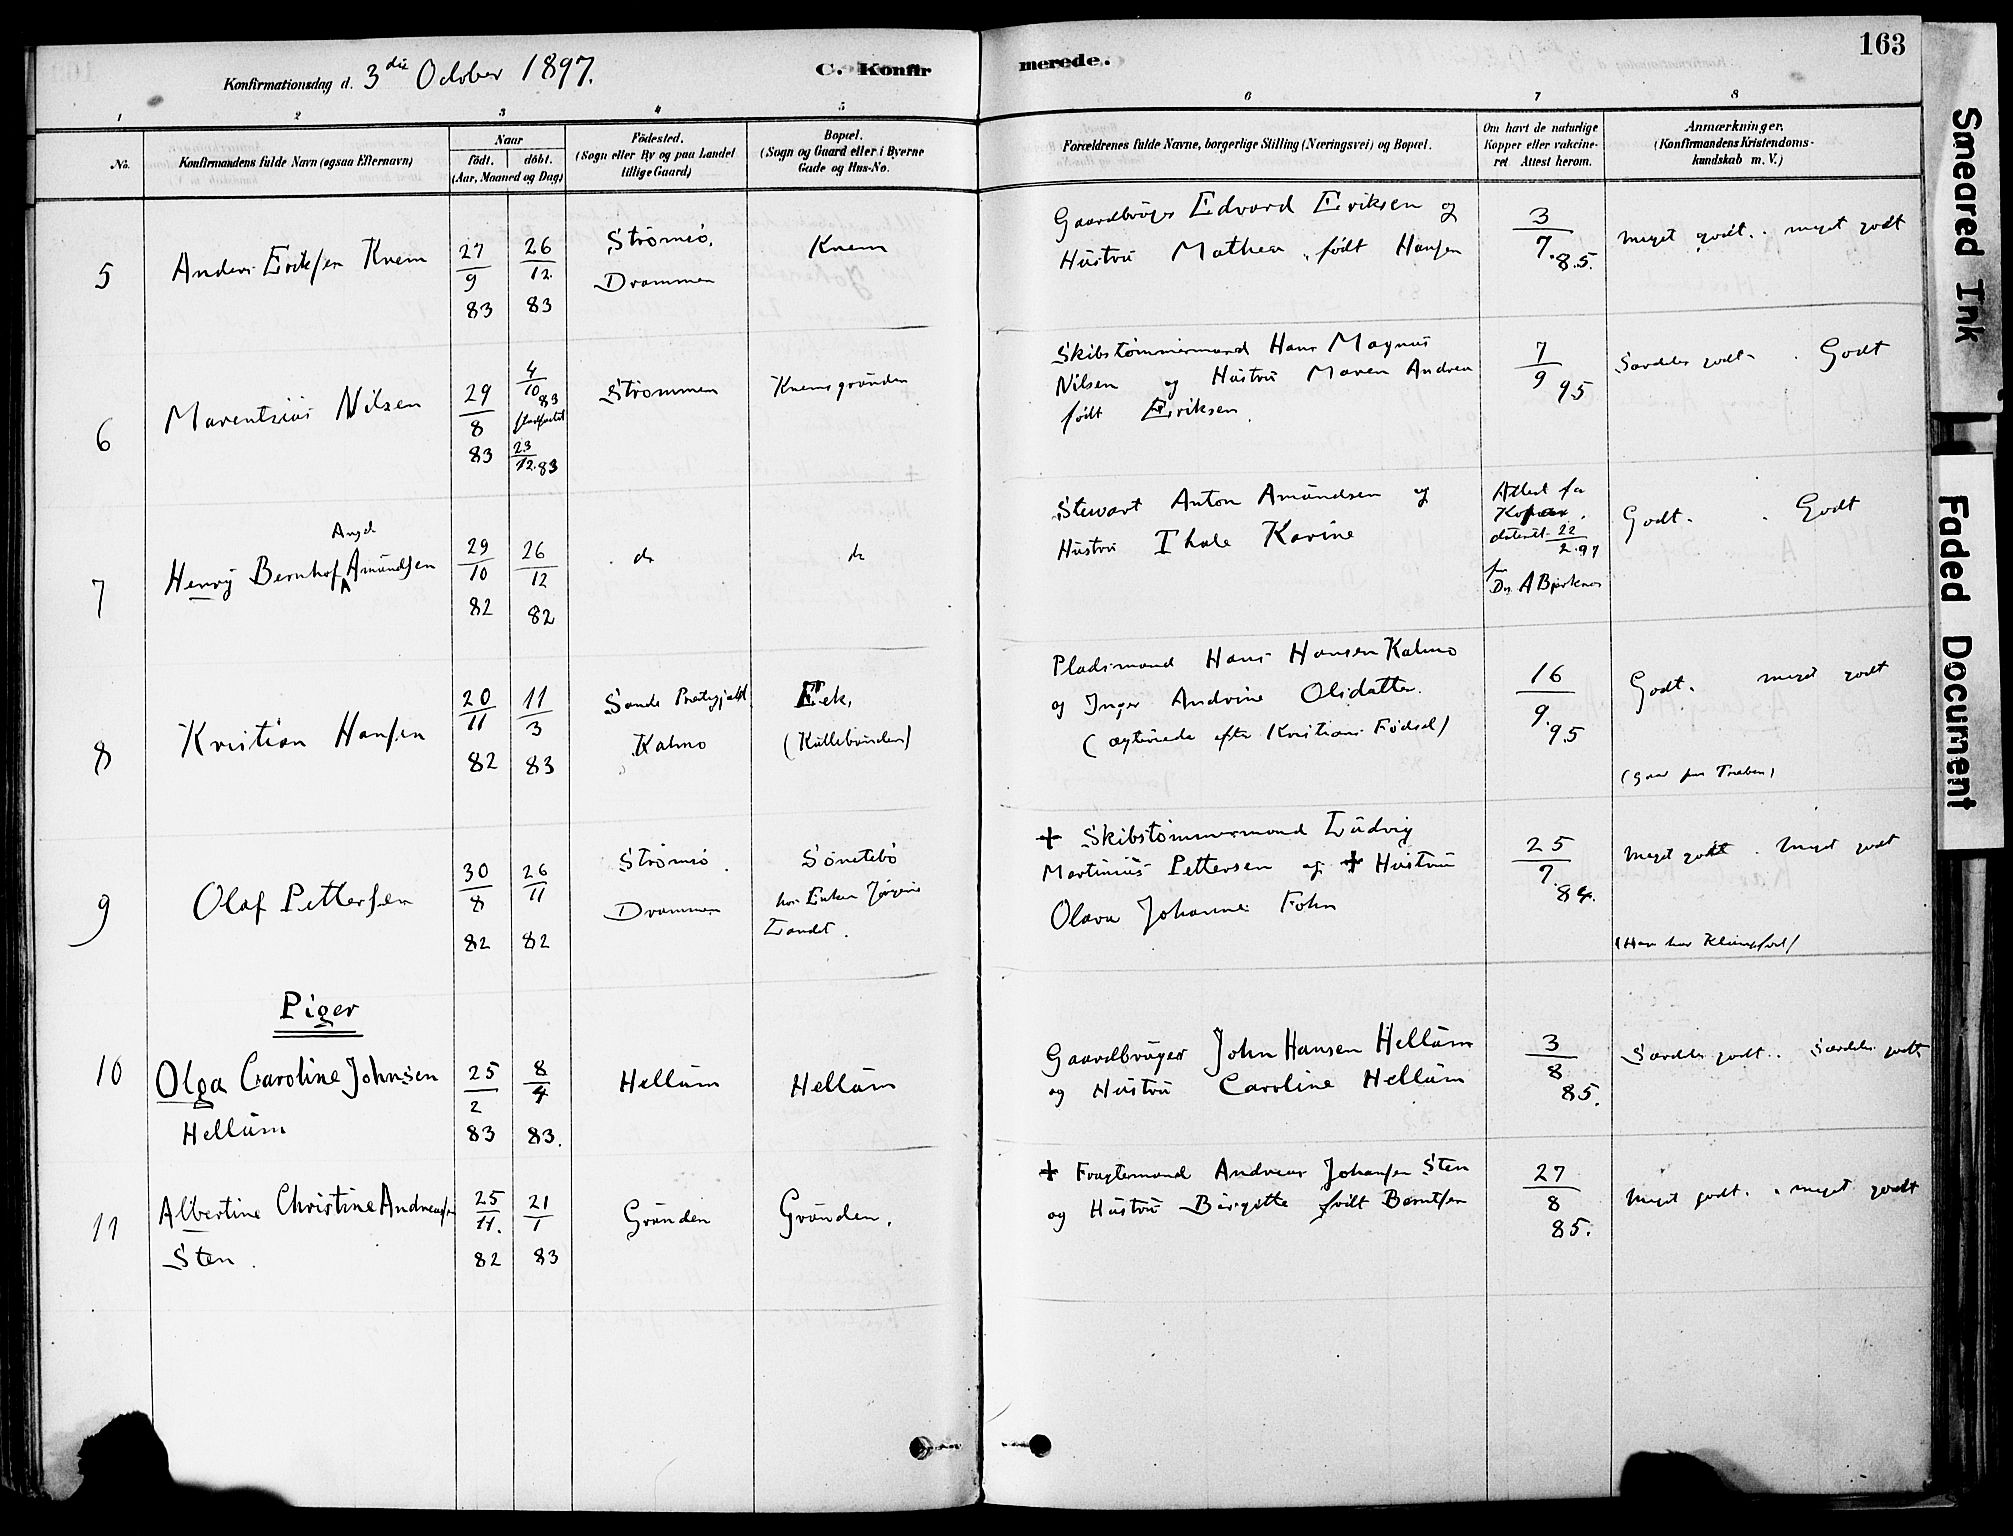 163
Konfirmationsdag d. 3die October 1897.
C. Konfirmerede.
1 2 3 4 5 6 7 8
No.
Konfirmandens fulde Navn (ogsaa Efternavn)
Naar
født. døbt.
(Aar, Maaned og Dag)
Fødested.
(Sogn eller By og paa Landet
tillige Gaard)
Bopæl.
(Sogn og Gaard eller i Byerne
Gade og Hus-No.
Forældrenes fulde Navne, borgerlige Stilling (Næringsvei) og Bopæl.
Om havt de naturlige
Kopper eller vakcineret
Attest herom.
Anmærkninger.
(Konfirmandens Kristendoms-
kundskab m. V.)
5
Anders Eriksen Knem
27/9 83
26/12 83
Strømsø,
Drammen
Knem
Gaardbruger Edvard Eriksen og
Hustru Mathea født Hansen
3/7.85.
Meget godt. meget godt
6
Marentzius Nilsen
29/8 83
4/10 83
stadfæstet
23/12.83
Strømmen
Knemsgrunden
Skibstømmermand Hans Magnus
Nilsen og Hustru Maren Andrea
født Eriksen.
7/9 95
Særdeles godt. Godt
7
Angel
Henry Bernhof Amundsen
29/10 82
26/12 82
do
do
Stewart Anton Amundsen og
Hustru Thale Karine
Attest for
Kopper
dateret 22/2.97
fra
Dr. A Bjerknes
Godt. Godt
8
Kristian Hansen
20/11 82
11/3 83
Sande Prestegjeld
Kalmo
Eek,
(Kullebunden)
Pladsmand Hans Hansen Kalmo
og Inger Andrine Olsdatter.
(ægteviede efter Kristians Fødsel)
16/9.95
Godt. meget godt
9
Olaf Pettersen
30/8 82
26/11 82
Strømsø.
Drammen
Sønetebø
hos Enken Jørgine
Tandet.
+ Skibstømmermand Ludvig
Martinius Pettersen og + Hustru
Olava Johanne Fohn
25/7.84.
Meget godt. Meget godt
Piger
10
Olga Caroline Johnsen
Hellum
25/2 83
8/4 83.
Hellum
Hellum
Gaardbruger John Hansen Hellum
og Hustru Caroline Hellum
3/8 85.
Særdeles godt. Særdeles godt
11
Albertine Christine Andreasen
Sten.
25/11. 82
21/1 83
Grunden
Grunden.
+ Fragtemand Andreas Johansen Sten
og Hustru Birgitte født Berntsen
27/8 85.
Meget godt. meget godt
Smeared Ink
Faded Document